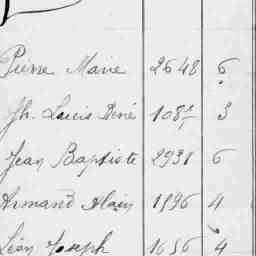 Pierre Marie 2648 6
Jh. Louis René 108 3
Jean Baptiste 2931 6
Armand Alain 1896 4
Léon Joseph 1656 4